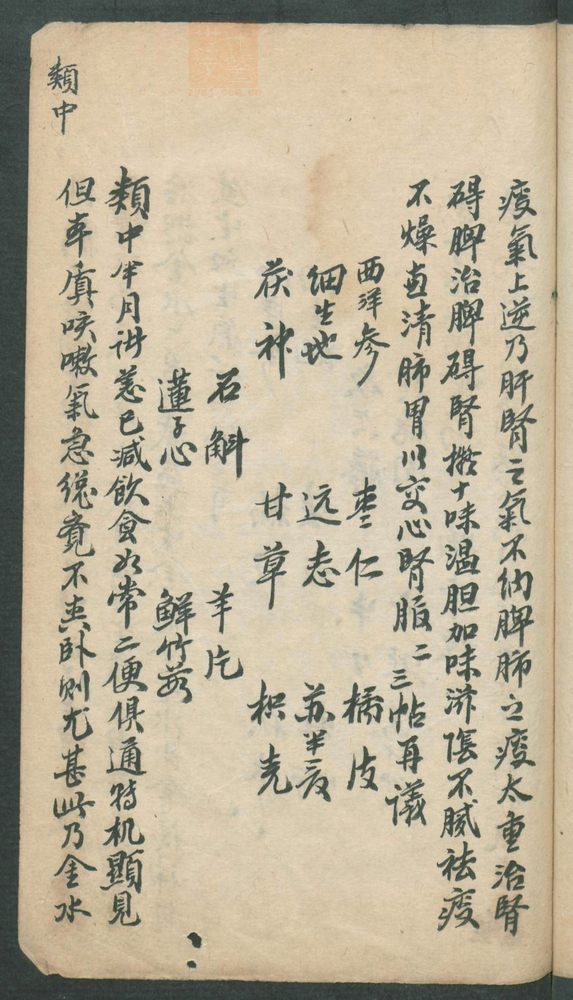 痰氣上逆乃肝腎之氣不納脾肺之痰太重治腎
碍脾治脾碍腎擬十味温胆加味滋陰不膩祛痰
不燥直清肺胃以交心腎服二三帖再議
西洋參 枣仁 橘皮
细生地 远志 苏半夏
茯神 甘草 枳壳
石斛 羊片
蓮子心 鮮竹茹
類中
類中半月诸恙已减飲食如常二便俱通特机顯見
但年 咳嗽氣急總覺不爽卧则尤甚此乃金水